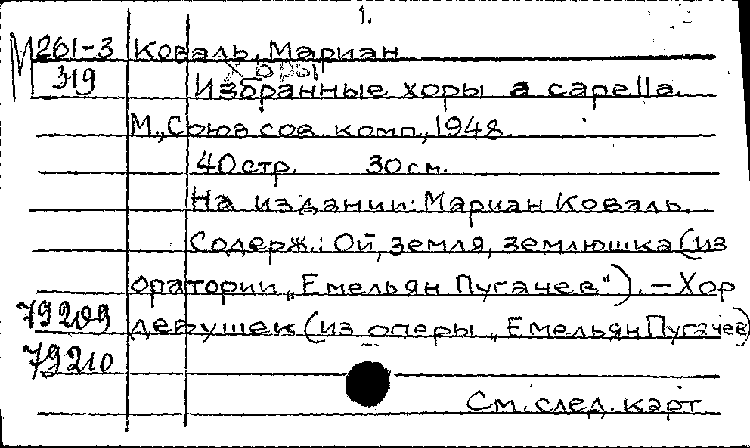 1.
М261-3 Коваль, Мариан
319 Хоры
Избранные хоры a capella.
М., Союз сов. комп., 1948.
40 стр. 30 см.
На издании: Мариан Коваль.
Содерж.: Ой, земля, землюшка (из
оратории „Емельян Пугачев"). — Хор
79209 девушек (из оперы „Емельян Пугачев)
79210
См. след. карт